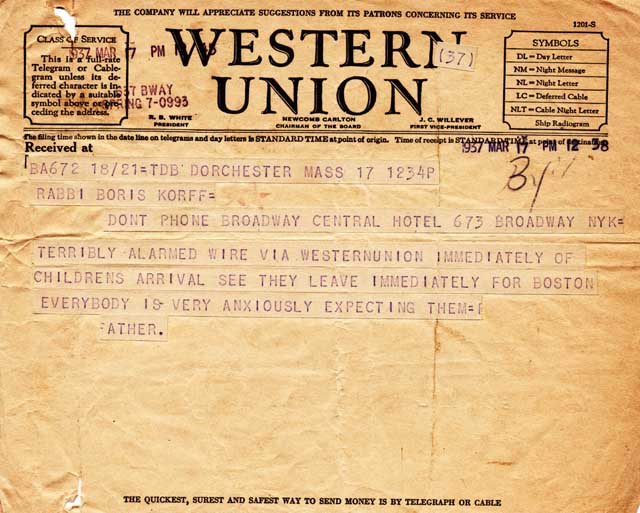 THE COMPANY WILL APPRECIATE SUGGESTIONS FROM ITS PATRONS CONCERNING ITS SERVICE
1201-S
CLASS OF SERVICE
This is a full-rate
Telegram or Cable-
gram unless its de-
ferred character is in-
dicated by a suitable
symbol above or pre-
ceding the address.
1937 MAR 17 PM
BWAY
SPRING 7-0993
WESTERN
UNION
(37)
R. B. WHITE
PRESIDENT
NEWCOMB CARLTON
CHAIRMAN OF THE BOARD
J. C. WILLEVER
FIRST VICE-PRESIDENT
SYMBOLS
DL = Day Letter
NM = Night Message
NL = Night Letter
LC = Deferred Cable
NLT = Cable Night Letter
Ship Radiogram
The filing time shown in the date line on telegrams and day letters is STANDARD TIME at point of origin. Time of receipt is STANDARD TIME at point of destination.
Received at
1937 MAR 17 PM 12 58
BA672 18/21=TDB DORCHESTER MASS 17 1234P
RABBI BORIS KORFF=
DONT PHONE BROADWAY CENTRAL HOTEL 673 BROADWAY NYK=
TERRIBLY ALARMED WIRE VIA WESTERNUNION IMMEDIATELY OF
CHILDRENS ARRIVAL SEE THEY LEAVE IMMEDIATELY FOR BOSTON
EVERYBODY IS VERY ANXIOUSLY EXPECTING THEM=
FATHER.
THE QUICKEST, SUREST AND SAFEST WAY TO SEND MONEY IS BY TELEGRAPH OR CABLE